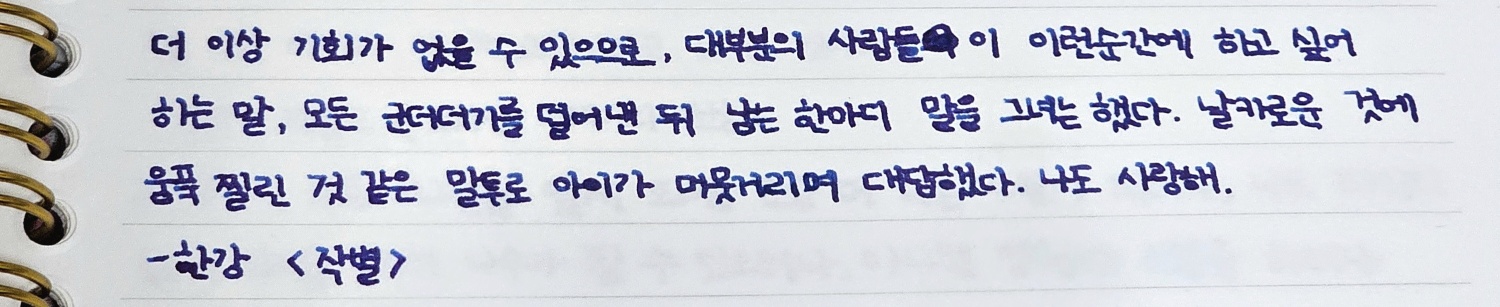 더 이상 기회가 없을 수 있으므로, 대부분의 사람들이 이런순간에 하고 싶어
하는 말, 모든 군더더기를 덜어낸 뒤 남는 한마디 말을 그녀는 했다. 날카로운 것에
움푹 찔린 것 같은 말투로 아이가 머뭇거리며 대답했다. 나도 사랑해.
-한강 <작별>